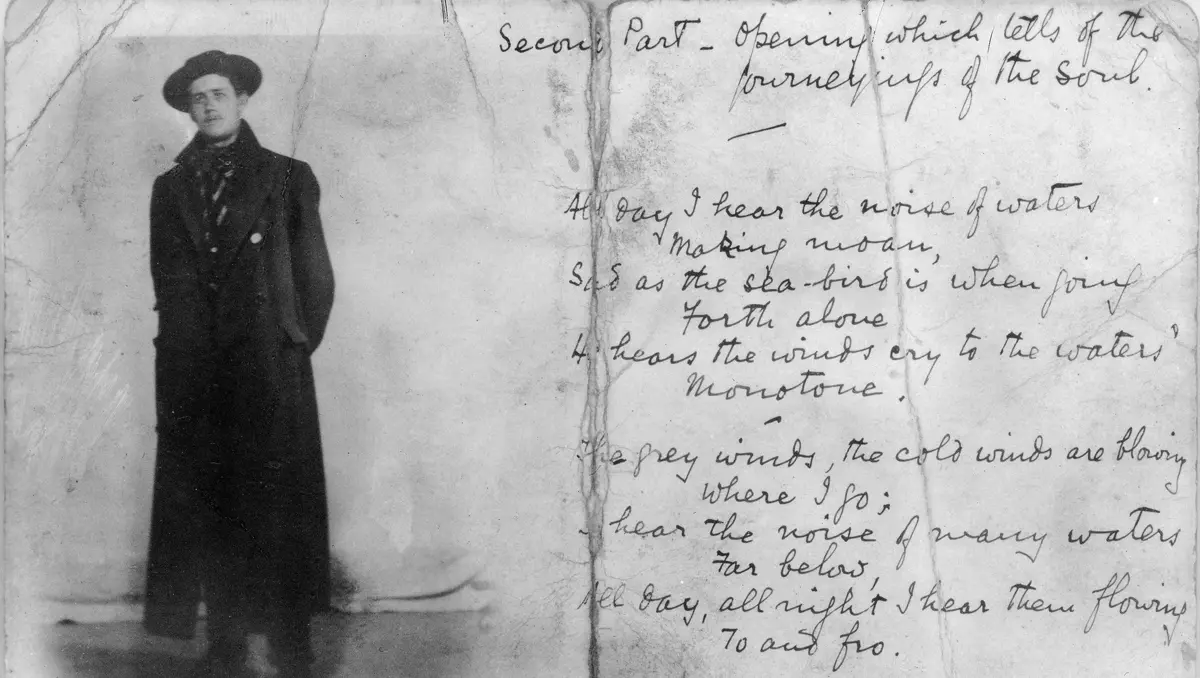 Second Part - Opening which tells of the
journeyings of the soul.
All day I hear the noise of waters
Making moan,
Sad as the sea-bird is when going
Forth alone
He hears the winds cry to the waters'
Monotone.
The grey winds, the cold winds are blowing
where I go;
I hear the noise of many waters
Far below,
All day, all night I hear them flowing
To and fro.